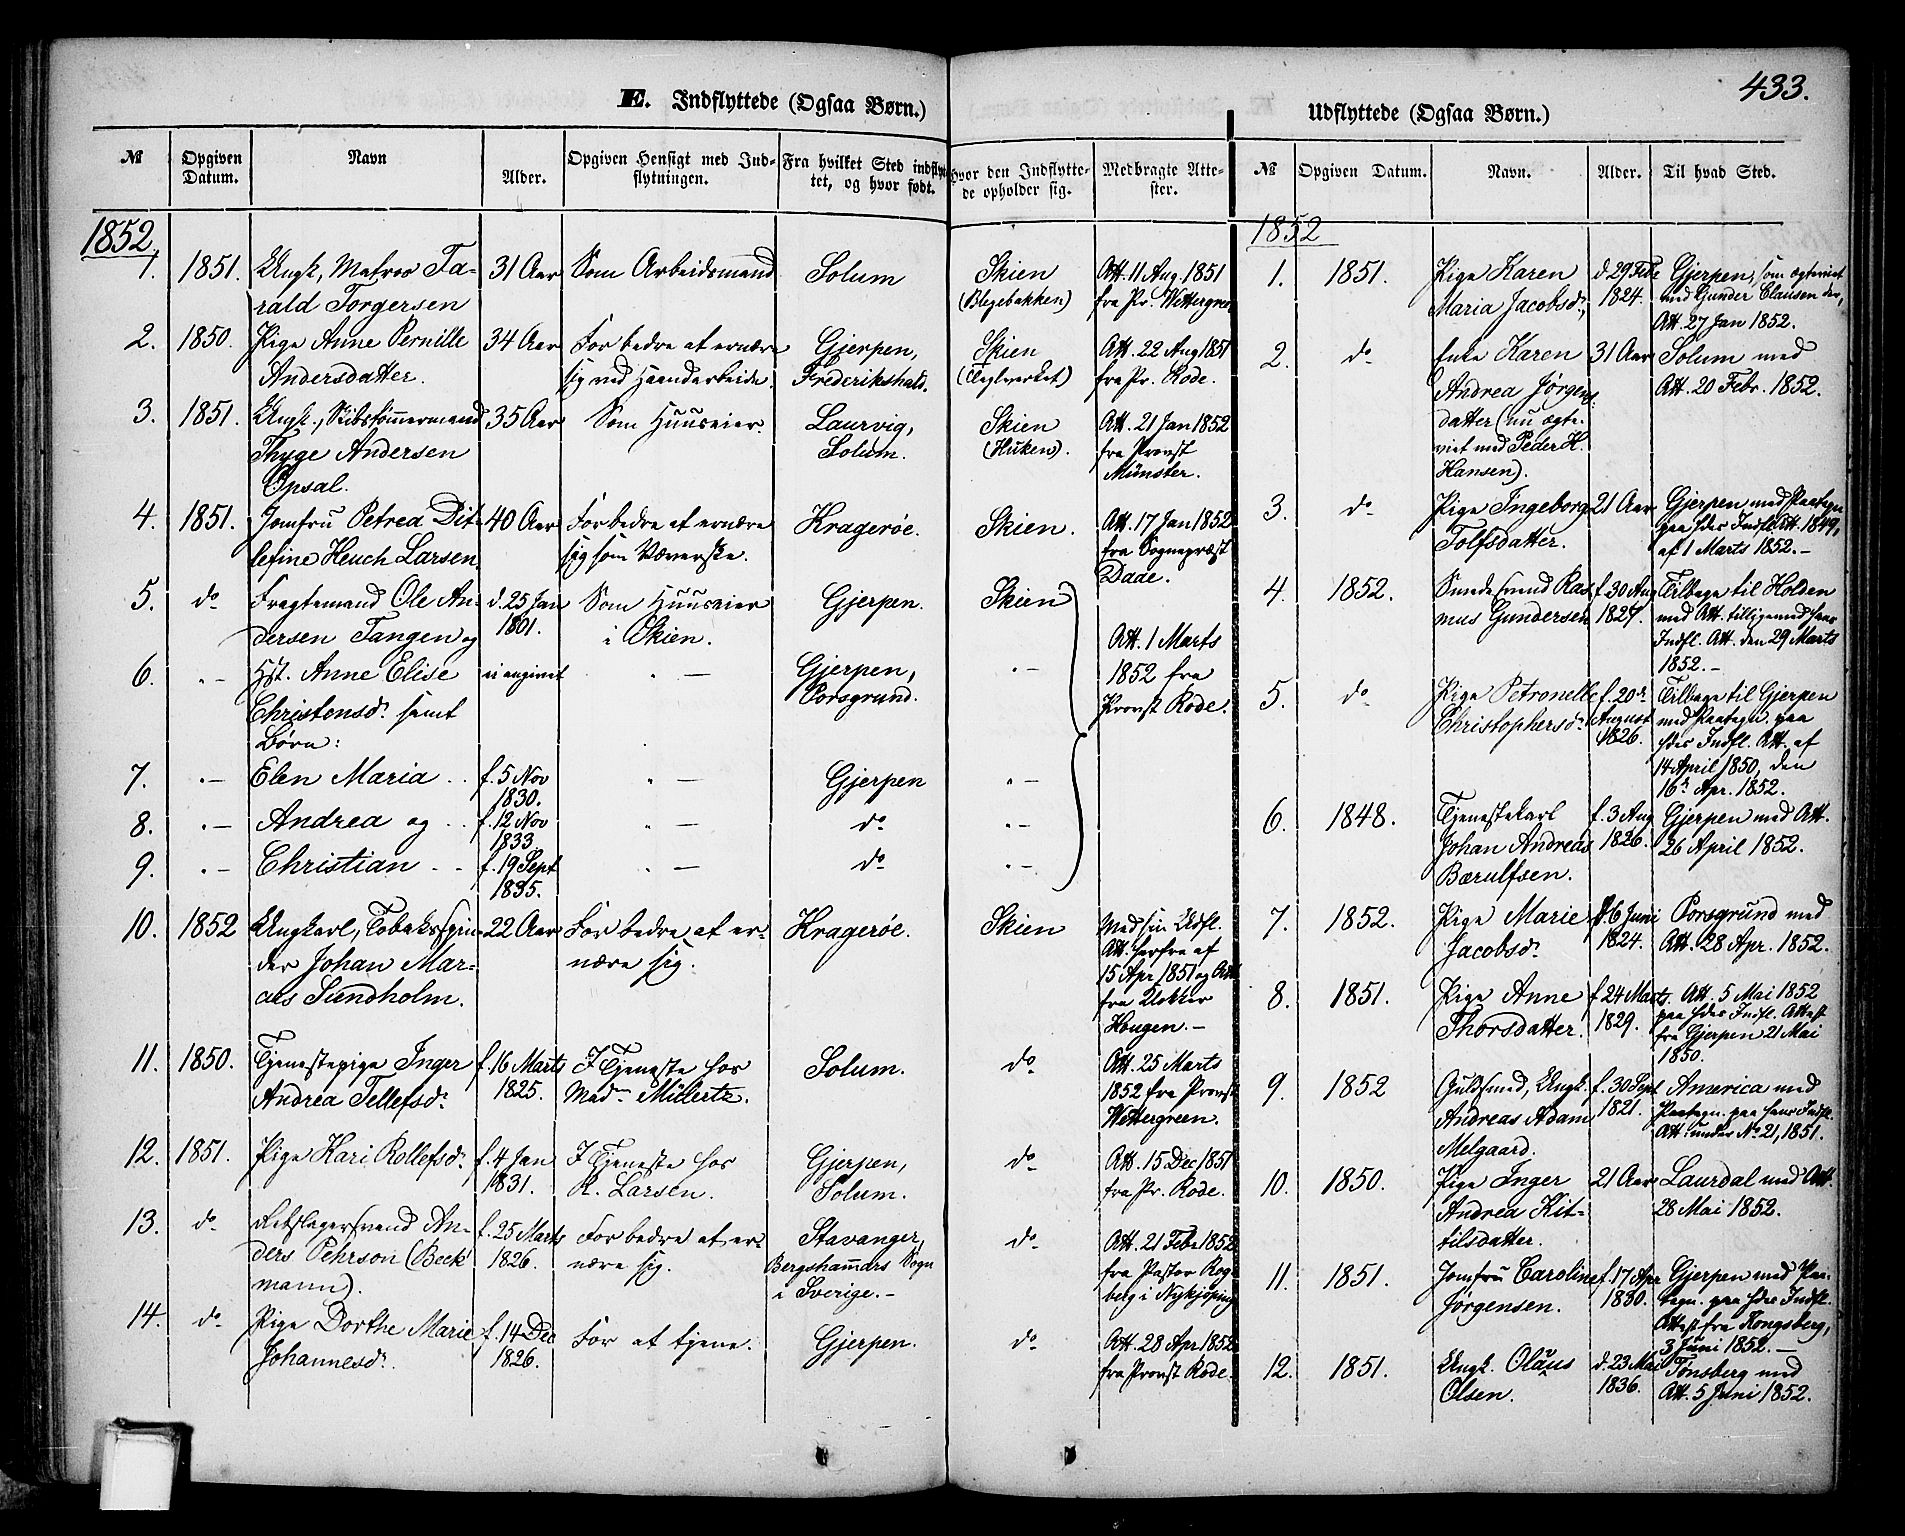 433.
E. Indflyttede (Ogsaa Børn.)
№
Opgiven Datum.
Navn
Alder.
Opgiven Hensigt med Ind-
flytningen.
Fra hvilket Sted indflyt-
tet, og hvor født.
Hvor den Indflytte-
de opholder sig.
Medbragte Atte-
ster.
1852
1. 1851. Ungk, Matros Ta- 31 Aar Som Arbeidsmand Solum Skien Att. 11 Aug. 1851
rald Torgersen (Blegebakken) fra Pr. Wettergreen
2. 1850. Pige Anne Pernille 34 Aar For bedre at ernære Gjerpen, Skien Att. 22 Aug 1851
Andersdatter. sig ved Haandarbeide. Frederikshald. (Teglverket) fra Pr. Rode.
3. 1851. Ungk., Skibstømmermand 35 Aar Som Huuseier. Laurvig, Skien Att. 21 Jan 1852
Thyge Andersen Solum. (Huken). fra Provst
Opsal. Münster.
4. 1851. Jomfru Petrea Dit- 40 Aar For bedre at ernære Kragerøe. Skien. Att. 17 Jan 1852
lefine Heuch Larsen. sig som Væverske. fra Sognepræst
Daae.
5. do Fragtemand Ole An- d. 25 Jan Som Huuseier Gjerpen. Skien
dersen Tangen og 1801. i Skien. Att. 1 Marts
6. " — Hst. Anne Elise ei angivet " — Gjerpen, " — 1852 fra
Christensd. samt Porsgrund. Provst Rode.
Børn:
7. " — Elen Maria . . f. 5 Nov " — Gjerpen " —
1830.
8. " — Andrea og . . f. 12 Nov " — do " —
1833.
9. " — Christian . . f. 19 Sept " — do " —
1835.
10. 1852 Ungkarl, Tobaksspin- 22 Aar For bedre at er- Kragerøe. Skien Med sin Udfl.
der Johan Mar- nære sig. Att. herfra af
ues Sundholm. 15 Apr. 1851 og Att.
fra Klokker
Hougen. —
11. 1850. Tjenestepige Inger f. 16 Marts I Tjeneste hos Solum. do Att. 25 Marts
Andrea Tellefsd. 1825. Madm. Müllertz. 1852 fra Provst
Wettergreen.
12. 1851. Pige Kari Rollefsd. f. 4 Jan I Tjeneste hos Gjerpen, do Att. 15 Dec 1851
1831. R. Larsen. Solum. fra Pr. Rode.
13. do Rebslagersvend An- f. 25 Marts For bedre at er- Stavanger, do Att. 21 Febr 1852
ders Pehrson (Beck 1826. nære sig. Bergshammars Sogn fra Pastor Rog-
mann). i Sverige. — berg i Nykjøping
14. do Pige Dorthe Marie f. 14 Dec For at tjene. Gjerpen. do Att. 28 Apr 1852
Johannesd. 1826. fra Provst Rode.
Udflyttede (Ogsaa Børn.)
№ Opgiven Datum. Navn. Alder. Til hvad Sted.
1852
1. 1851. Pige Karen d. 29 Febr Gjerpen, som egteviet
Maria Jacobsd., 1824. med Gunder Clausen der,
Att. 27 Jan 1852.
2. do Enke Karen 31 Aar Solum med
Andrea Jørgens- Att. 20 Febr. 1852.
datter (nu egte-
viet med Peder H.
Hansen).
3. do Pige Ingeborg 21 Aar Gjerpen med Paategn
Tolfsdatter. paa hdes Indfl. Att. 1849,
af 1 Marts 1852. —
4. 1852. Smedesvend Ras- f. 30 Aug Tilbage til Holden
mus Gundersen 1827. med Att. tilligemed hans
Indfl. Att. den 29 Marts
1852. —
5. do Pige Petronelle f. 20de Tilbage til Gjerpen
Christophersd. August med Paategn. paa
1826. hdes Indfl. Att. af
14 April 1850, den
16de Apr. 1852.
6. 1848. Tjenestekarl f. 3 Aug Gjerpen med Att.
Johan Andreas 1826. 26 April 1852.
Bærulfsen.
7. 1852. Pige Marie f. 6 Juni Porsgrund med
Jacobsd. 1824. Att. 28 Apr. 1852.
8. 1851. Pige Anne f. 24 Marts. Att. 5 Mai 1852
Thorsdatter. 1829. paa hdes Indfl. Attest
fra Gjerpen 21 Mai
1850.
9. 1852 Guldsmed, Ungk. f. 30 Sept America med
Andreas Adam 1821. Paategn. paa hans Indfl.
Melgaard. Att. under No. 21, 1851.
10. 1850. Pige Inger 21 Aar Laurdal med Att.
Andrea Kit- 28 Mai 1852.
tilsdatter.
11. 1851. Jomfru Caroline f. 17 Apr Gjerpen med Paa-
Jørgensen. 1830. tegn. paa hdes Indfl.
Attest fra Kongsberg,
3 Juni 1852. —
12. 1851. Ungk. Olaus d. 23 Mai Tønsberg med
Olsen. 1836. Att. 5 Juni 1852.